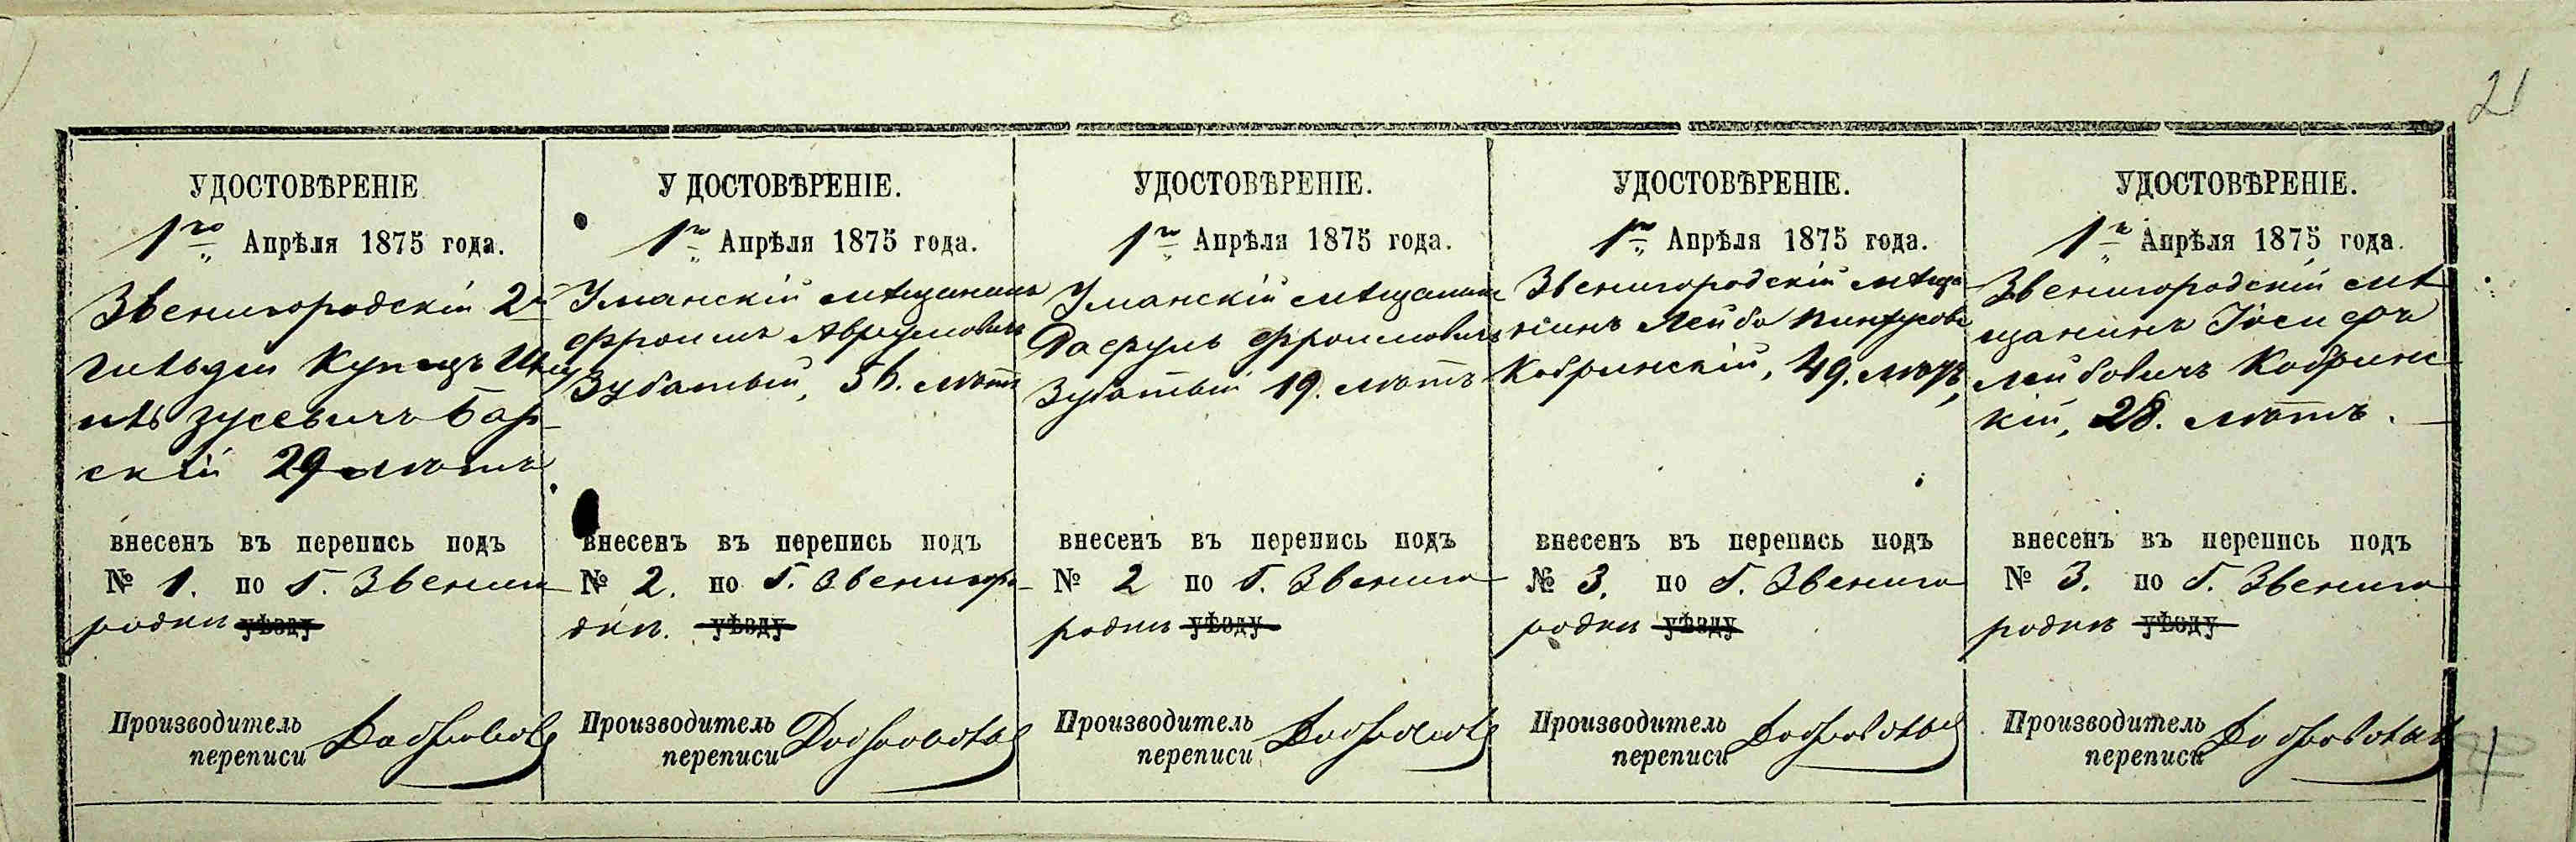 21
УДОСТОВѢРЕНІЕ
1го Апрѣля 1875 года.
Звенигородскій 2й
гильдіи Купецъ
Зусевичъ Бар-
скій 29 лѣтъ
внесенъ въ перепись подъ
№ 1. по г. Звениго
родки уѣзду
Производитель
переписи
УДОСТОВѢРЕНІЕ.
1го Апрѣля 1875 года.
Уманскій мѣщанинъ
Фроимъ Аврумовичъ
Зубатый, лѣтъ
внесенъ въ перепись подъ
№ 2. по г. Звенигоро-
дки. уѣзду
Производитель
переписи
УДОСТОВѢРЕНІЕ.
1го Апрѣля 1875 года.
Уманскій мѣщанинъ
Фроимовичъ
Зубатый 19. лѣтъ
внесенъ въ перепись подъ
№ 2 по г. Звениго
родки уѣзду
Производитель
переписи
УДОСТОВѢРЕНІЕ.
1го Апрѣля 1875 года.
Звенигородскій мѣща
нинъ Лейба Пинхусовъ
Кобринскій, 49. лѣтъ,
внесенъ въ перепись подъ
№ 3. по г. Звениго
родки уѣзду
Производитель
переписи
УДОСТОВѢРЕНІЕ.
1го Апрѣля 1875 года.
Звенигородскій мѣ
щанинъ Іосифъ
Лейбовичъ Кобринс
кій, 28. лѣтъ.
внесенъ въ перепись подъ
№ 3. по г. Звениго
родки уѣзду
Производитель
переписи